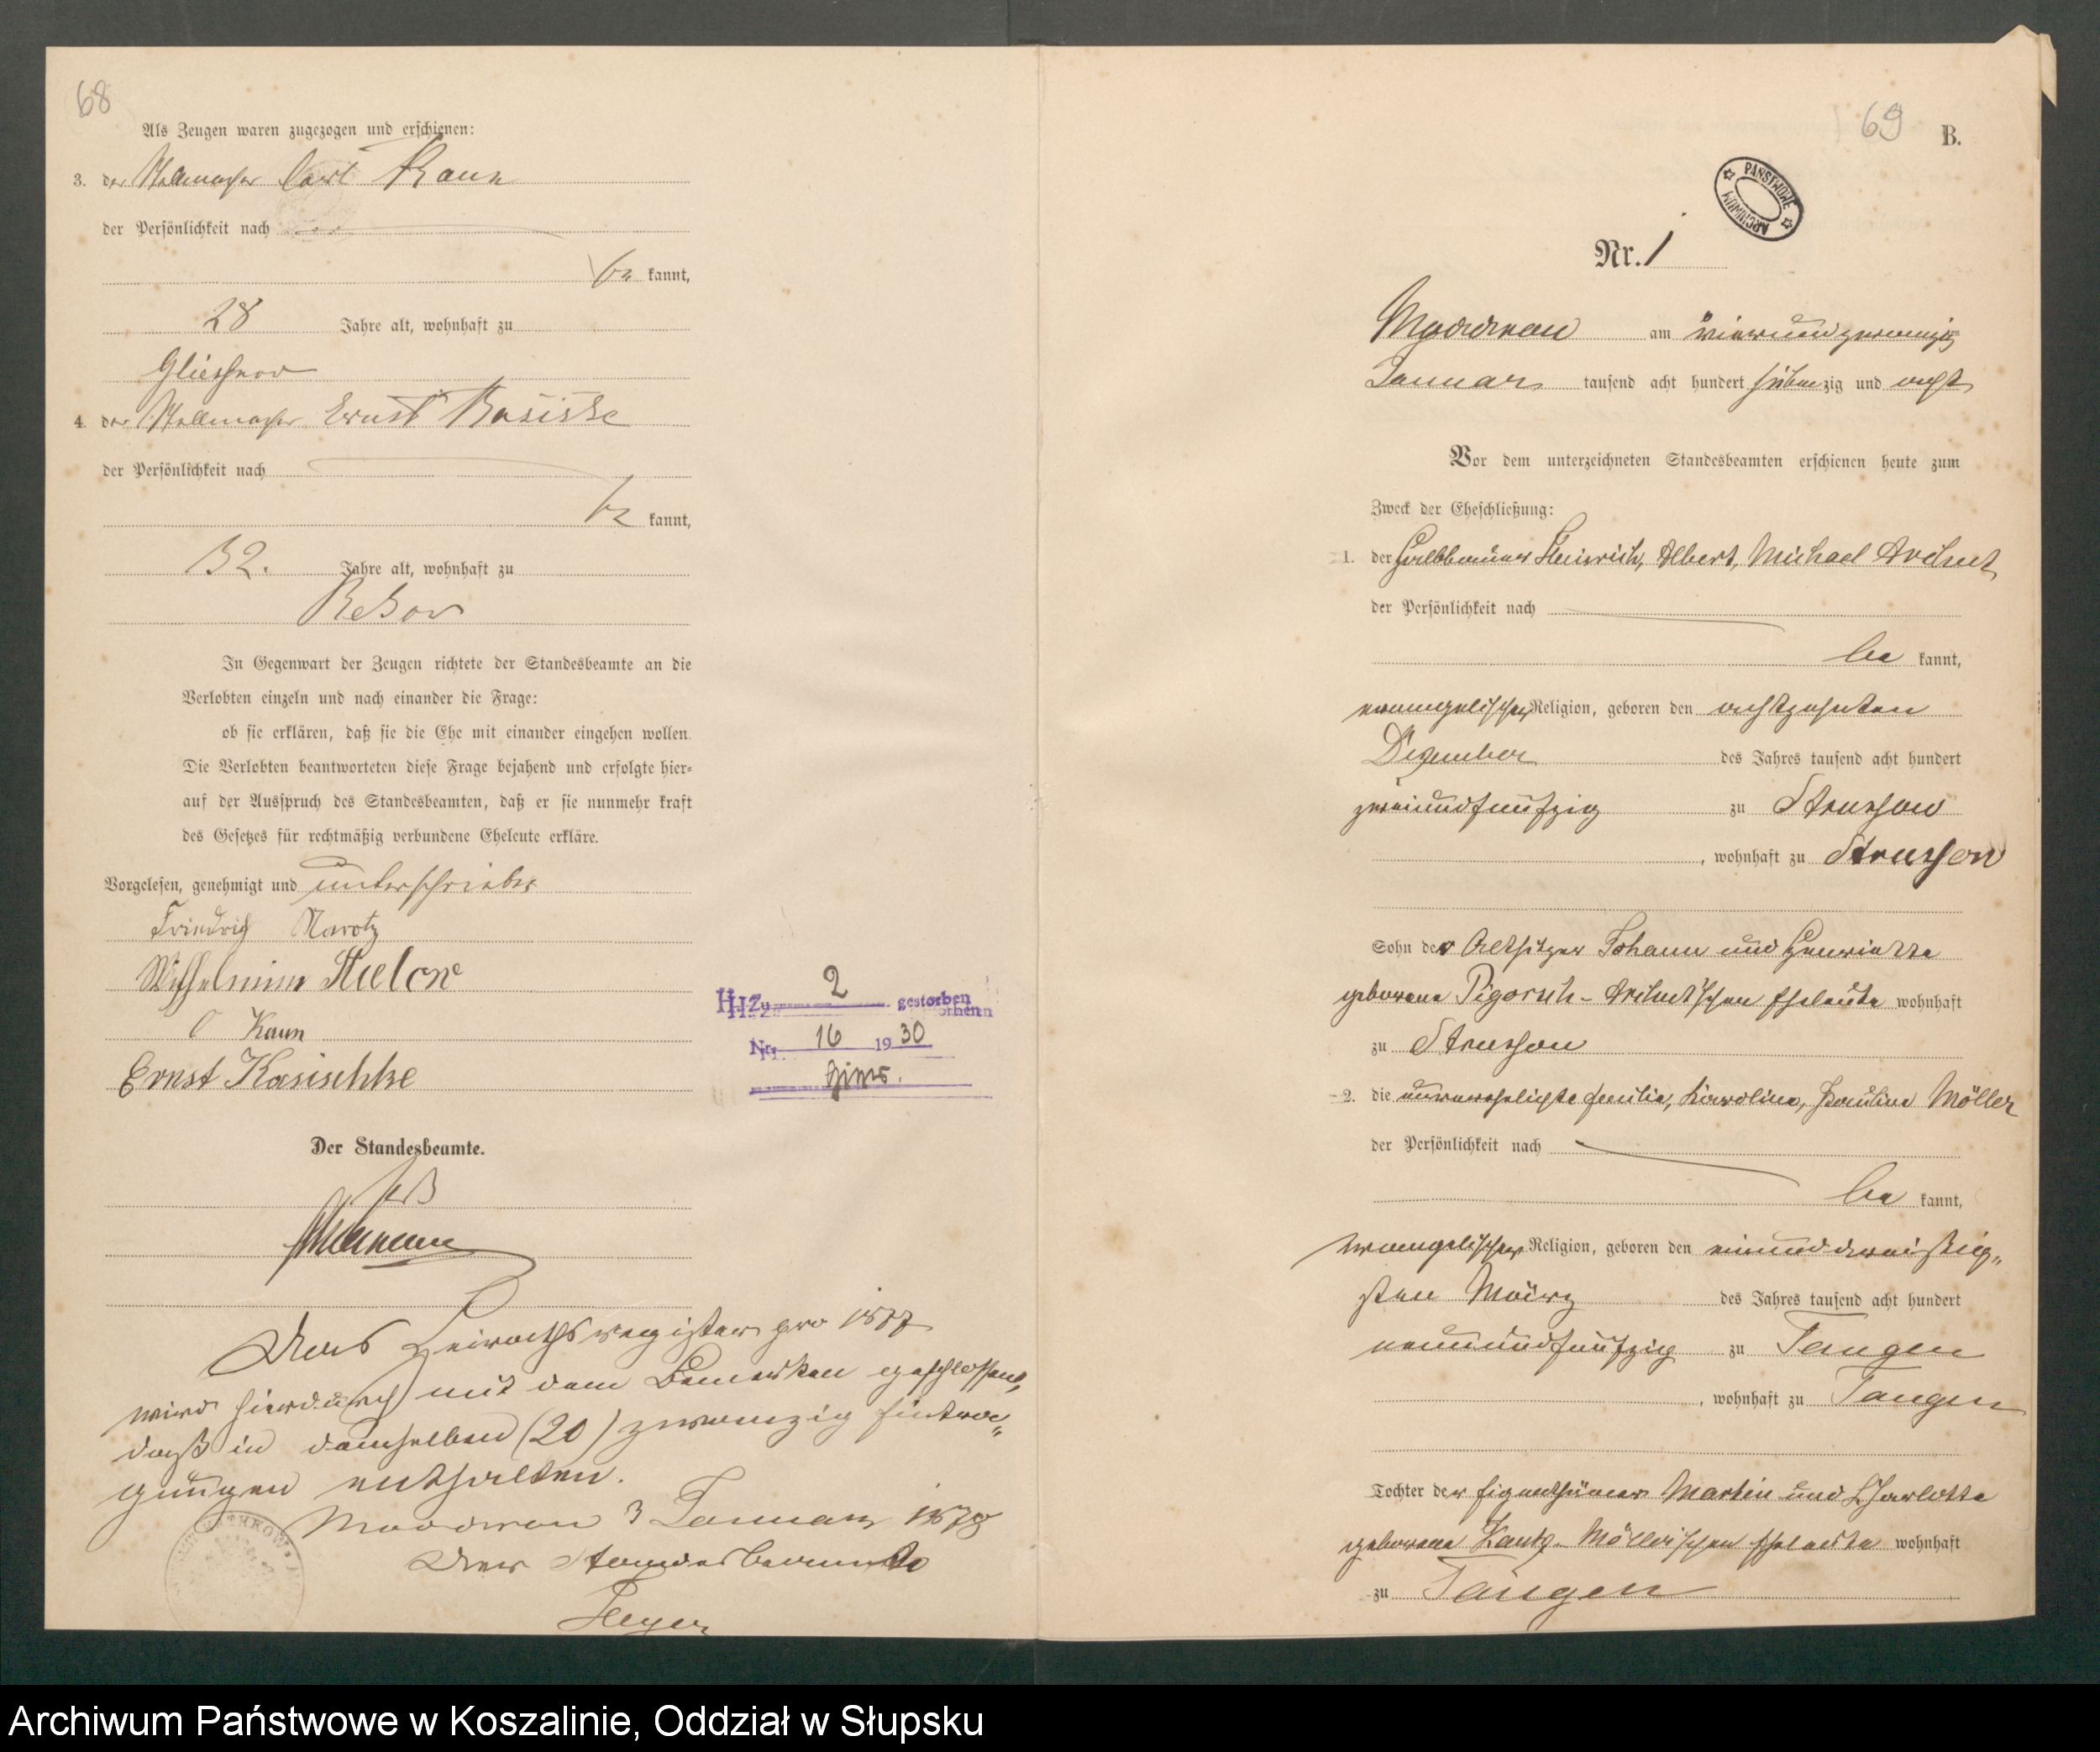 68
Als Zeugen waren zugezogen und erschienen:
3. der Stellmacher Carl Kaun
der Persönlichkeit nach
be kannt,
28 Jahre alt, wohnhaft zu
Gliesnow
4. der Stellmacher Ernst Kasiske
der Persönlichkeit nach
be kannt,
32. Jahre alt, wohnhaft zu
Rekow
In Gegenwart der Zeugen richtete der Standesbeamte an die
Verlobten einzeln und nach einander die Frage:
ob sie erklären, daß sie die Ehe mit einander eingehen wollen.
Die Verlobten beantworteten diese Frage bejahend und erfolgte hier-
auf der Ausspruch des Standesbeamten, daß er sie nunmehr kraft
des Gesetzes für rechtmäßig verbundene Eheleute erkläre.
Vorgelesen, genehmigt und unterschrieben
Friedrich Marotz
Wilhelmine
C Kaun
Ernst Kasischke
H. Zu 2 gestorben
Nr. 16 1930
hier.
Der Standesbeamte.
Das Heirathsregister pro 1877
wird hierdurch mit dem Bemerken geschlossen,
daß in demselben (20) zwanzig Eintra-
gungen enthalten.
Moddrow 3 Januar 1878
Der Standesbeamte
Heyer
69
B.
PAŃSTWOWE ARCHIWUM
Nr. 1
Moddrow am vierundzwanzig
Januar tausend acht hundert siebenzig und acht
Vor dem unterzeichneten Standesbeamten erschienen heute zum
Zweck der Eheschließung:
1. der Halbbauer Heinrich, Albert, Michael
der Persönlichkeit nach
be kannt,
evangelischer Religion, geboren den achtzehnten
Dezember des Jahres tausend acht hundert
zweiundfünfzig zu Strussow
, wohnhaft zu Strussow
Sohn der Altsitzer Johann und Henriette
geborene Eheleute wohnhaft
zu Strussow
2. die unverehelichte Emilie, Karoline, Pauline Möller
der Persönlichkeit nach
be kannt,
evangelischer Religion, geboren den einunddreißig-
sten März des Jahres tausend acht hundert
neunundfünfzig zu Tangen
, wohnhaft zu Tangen
Tochter der Eigenthümer Martin und Charlotte
geborene Kautz-Möllerschen Eheleute wohnhaft
zu Tangen
Archiwum Państwowe w Koszalinie, Oddział w Słupsku